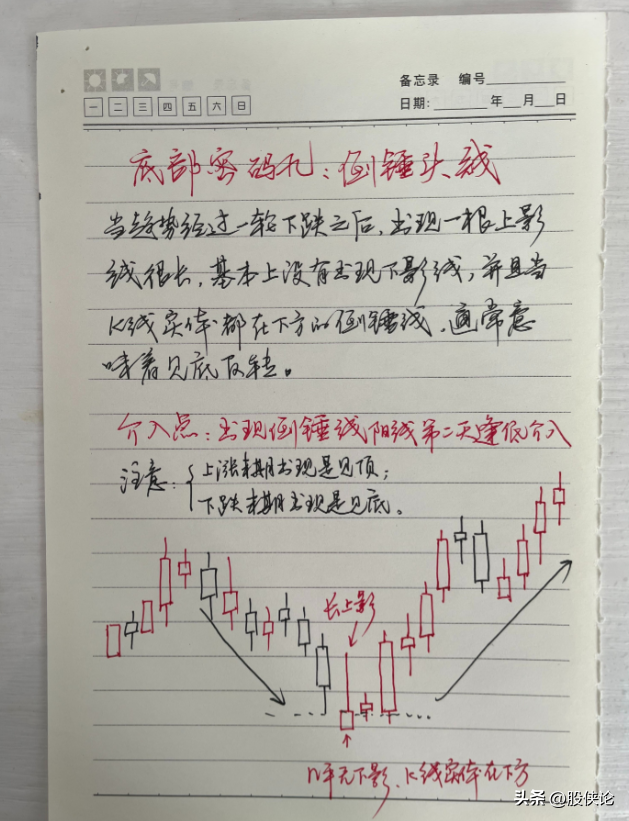 备忘录 编号
一 二 三 四 五 六 日
日期: 年 月 日
底部密码九:倒锤头线
当趋势经过一轮下跌之后,出现一根上影
线很长,基本上没有出现下影线,并且当
K线实体都在下方的倒锤线,通常意
味着见底反转。
介入点:出现倒锤线阳线第二天逢低介入
注意:
上涨末期出现是见顶;
下跌末期出现是见底。
长上影
几乎无下影、K线实体在下方
头条 @股侠论